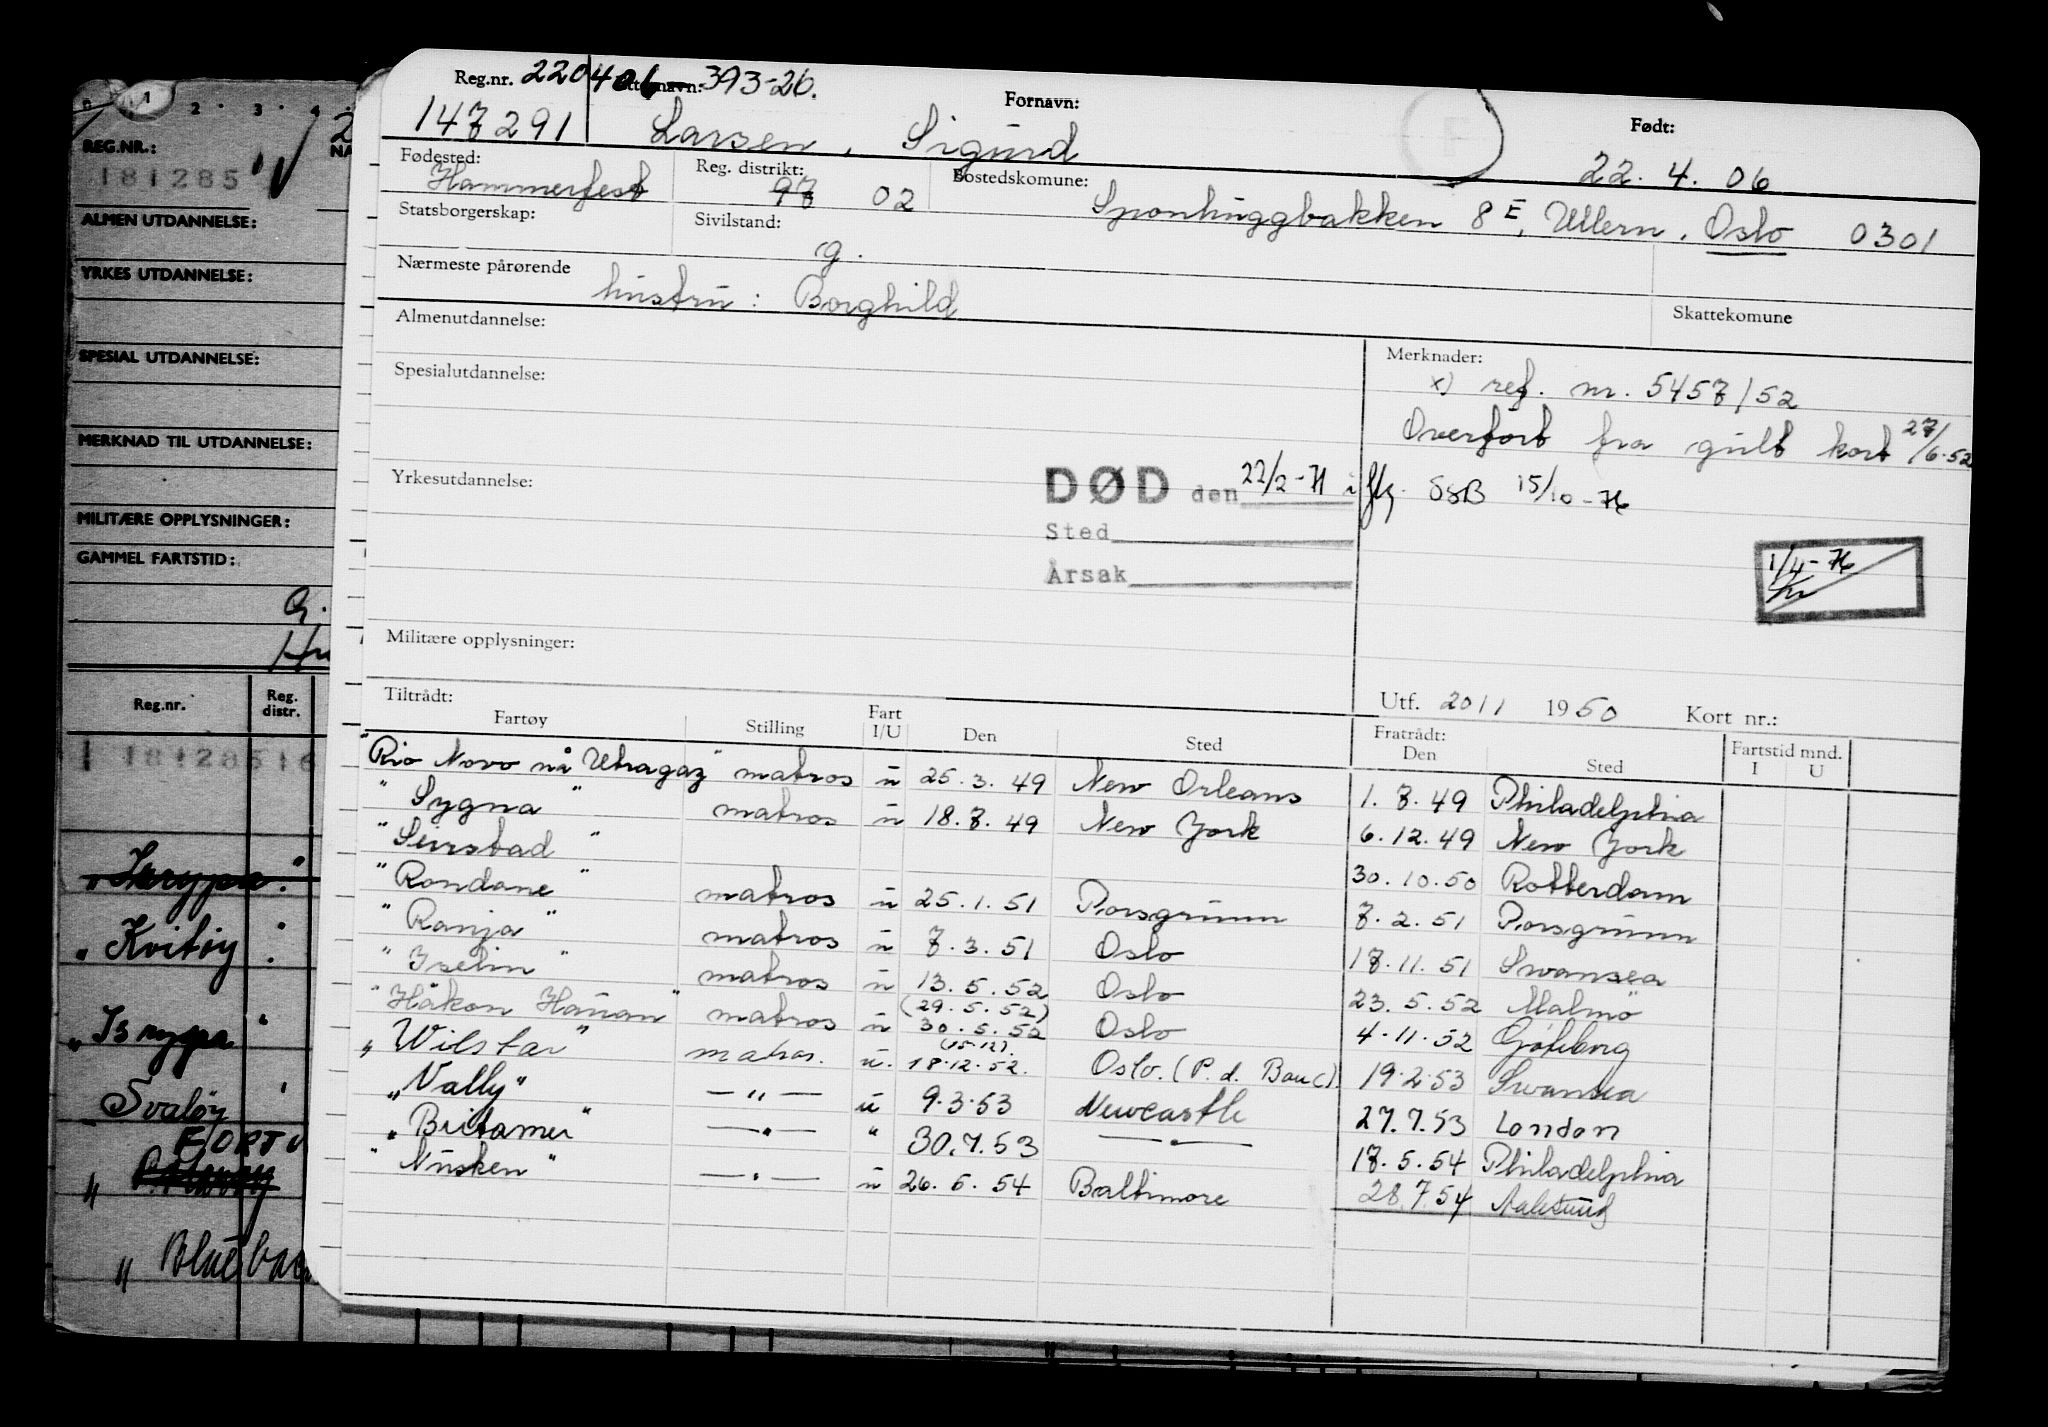 1 2 3 4
REG.NR.:
181285
ALMEN UTDANNELSE:
YRKES UTDANNELSE:
SPESIAL UTDANNELSE:
MERKNAD TIL UTDANNELSE:
MILITÆRE OPPLYSNINGER:
GAMMEL FARTSTID:
Reg.nr. Reg. distr.
181285 16
Kvitøy
Svaløy
Reg.nr. 220406 Etternavn: 393-26. Fornavn: Født:
147291 Larsen, Sigurd 22.4.06
Fødested: Hammerfest Reg. distrikt: 97 02 Bostedskomune: Sponhuggbakken 8E, Ullern, Oslo 0301
Statsborgerskap: Sivilstand: g.
Nærmeste pårørende hustru: Borghild Skattekomune
Almenutdannelse: Merknader:
x) ref. nr. 5457/52
Spesialutdannelse:
Overført fra gult kort 27/6.52
Yrkesutdannelse: DØD den 22/2-71 iflg. SSB 15/10-76
Sted
Årsak 1/4-76
Militære opplysninger:
Utf. 20/1 1950 Kort nr.:
Tiltrådt: Fratrådt: Fartstid mnd.
Fartøy Stilling Fart I/U Den Sted Den Sted I U
"Rio Novo nå Utragaz" matros u 25.3.49 New Orleans 1.7.49 Philadelphia
"Sygna" matros u 18.7.49 New York 6.12.49 New York
"Seirstad" 30.10.50 Rotterdam
"Rondane" matros u 25.1.51 Porsgrunn 7.2.51 Porsgrunn
"Ranja" matros u 7.3.51 Oslo 17.11.51 Swansea
"Iselin" matros u 13.5.52 Oslo 23.5.52 Malmö
(29.5.52)
"Håkon Hauan" matros u 30.5.52 Oslo 4.11.52 Gøteborg
(15.12).
"Wilstar" matros. u. 18.12.52. Oslo. (P.d. Bouc). 19.2.53 Swansea
"Vally" —"— u 9.3.53 Newcastle 27.7.53 London
"Britamer" —"— " 30.7.53 —"— 17.5.54 Philadelphia
"Nusken" —"— u 26.5.54 Baltimore 28.7.54 Aalesund